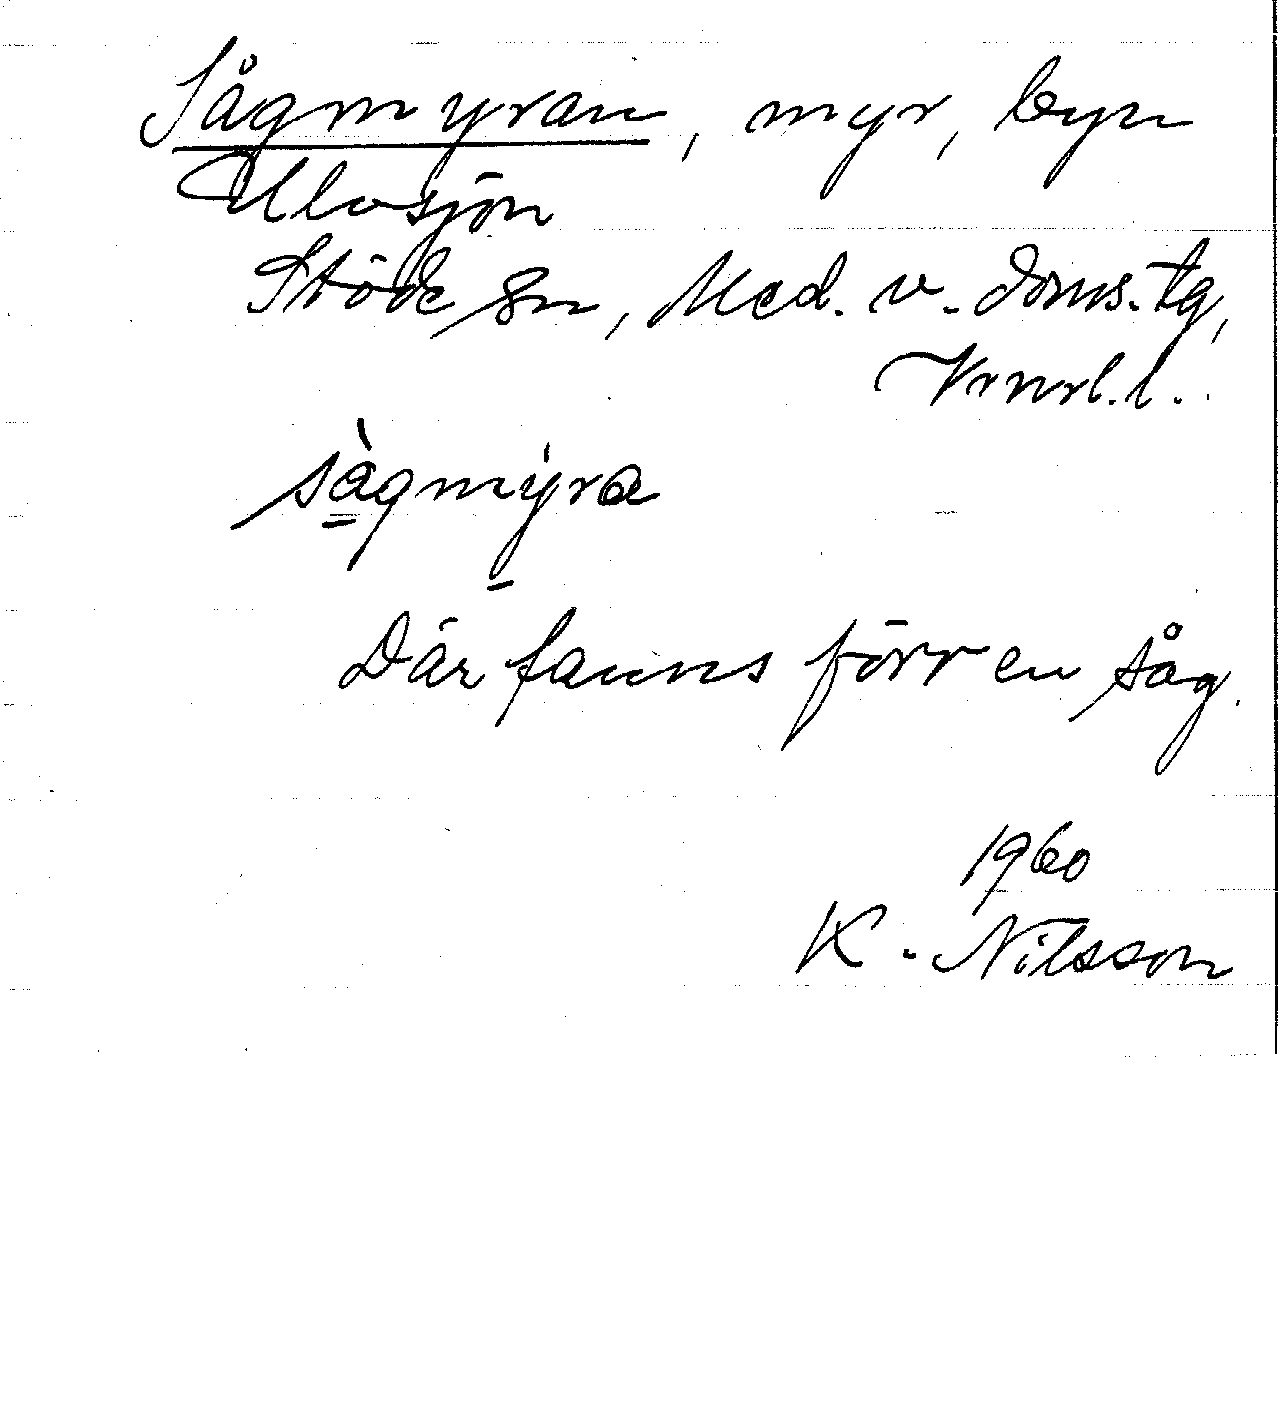 Sågmyran, myr, byn
Ulvsjön
Stöde sn, Med. v. doms. tg,
Vrnrl. l.
sàgmýra
Där fanns förr en såg.
1960
K. Nilsson